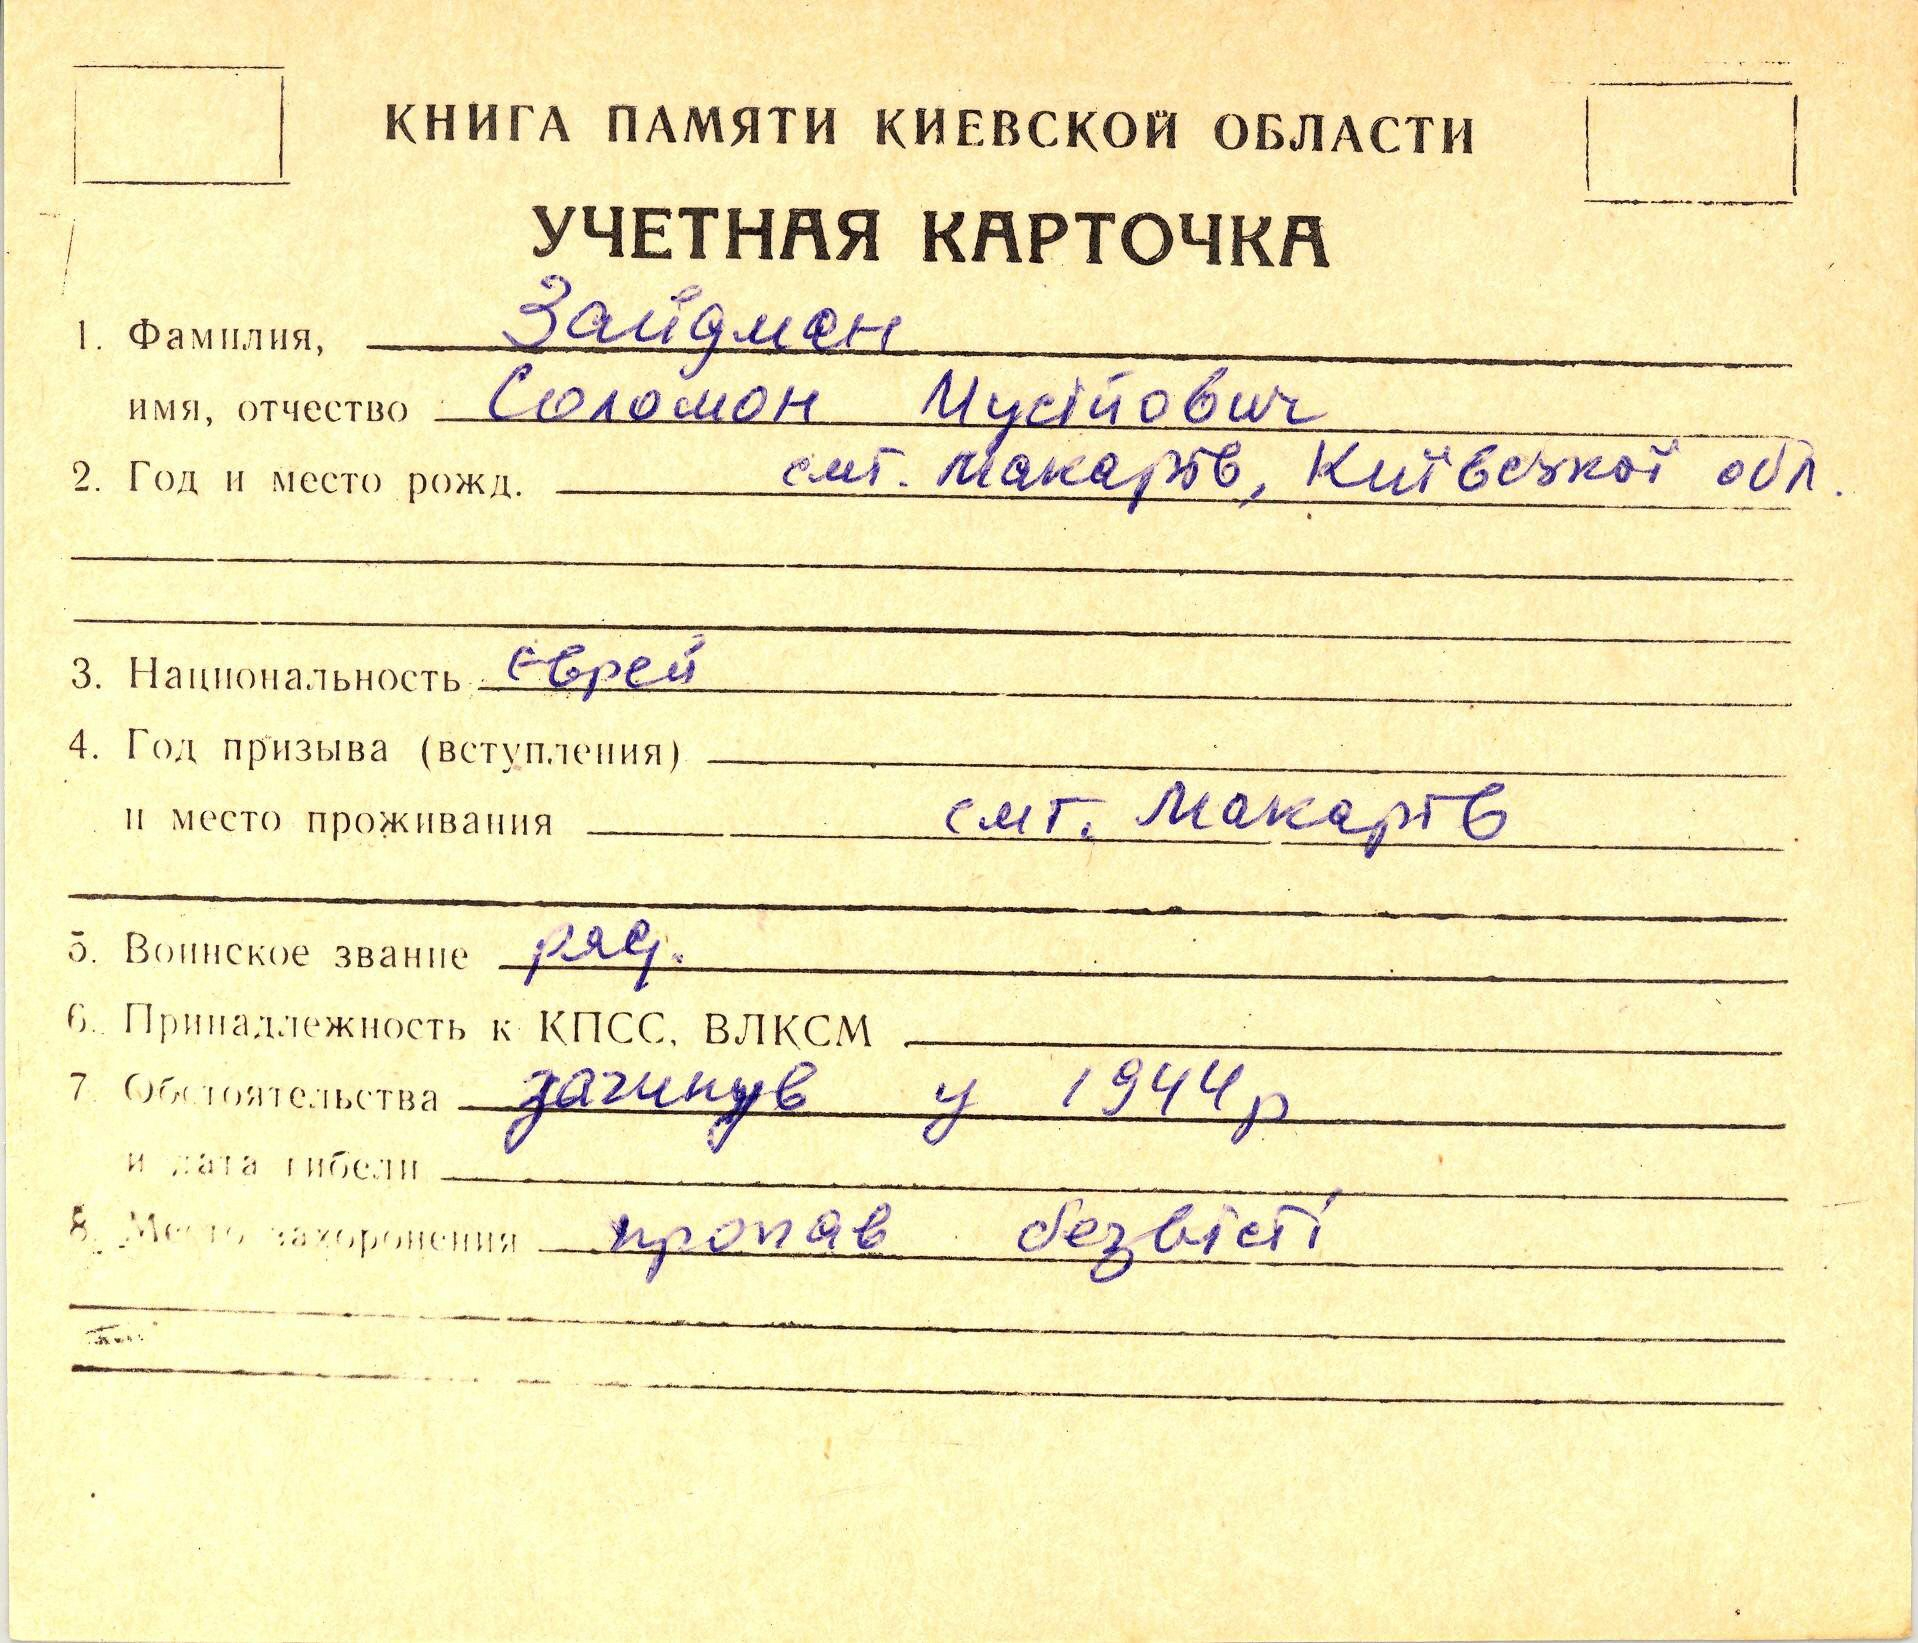 КНИГА ПАМЯТИ КИЕВСКОЙ ОБЛАСТИ
УЧЕТНАЯ КАРТОЧКА
1. Фамилия, Зайдман
имя, отчество Соломон Мусійович
2. Год и место рожд. смт. Макарів, Київської обл.
3. Национальность Єврей
4. Год призыва (вступления)
и место проживания смт. Макарів
5. Воинское звание ряд.
6. Принадлежность к КПСС, ВЛКСМ
7. Обстоятельства загинув у 1944 р
и дата гибели
8. Место захоронения пропав безвісті